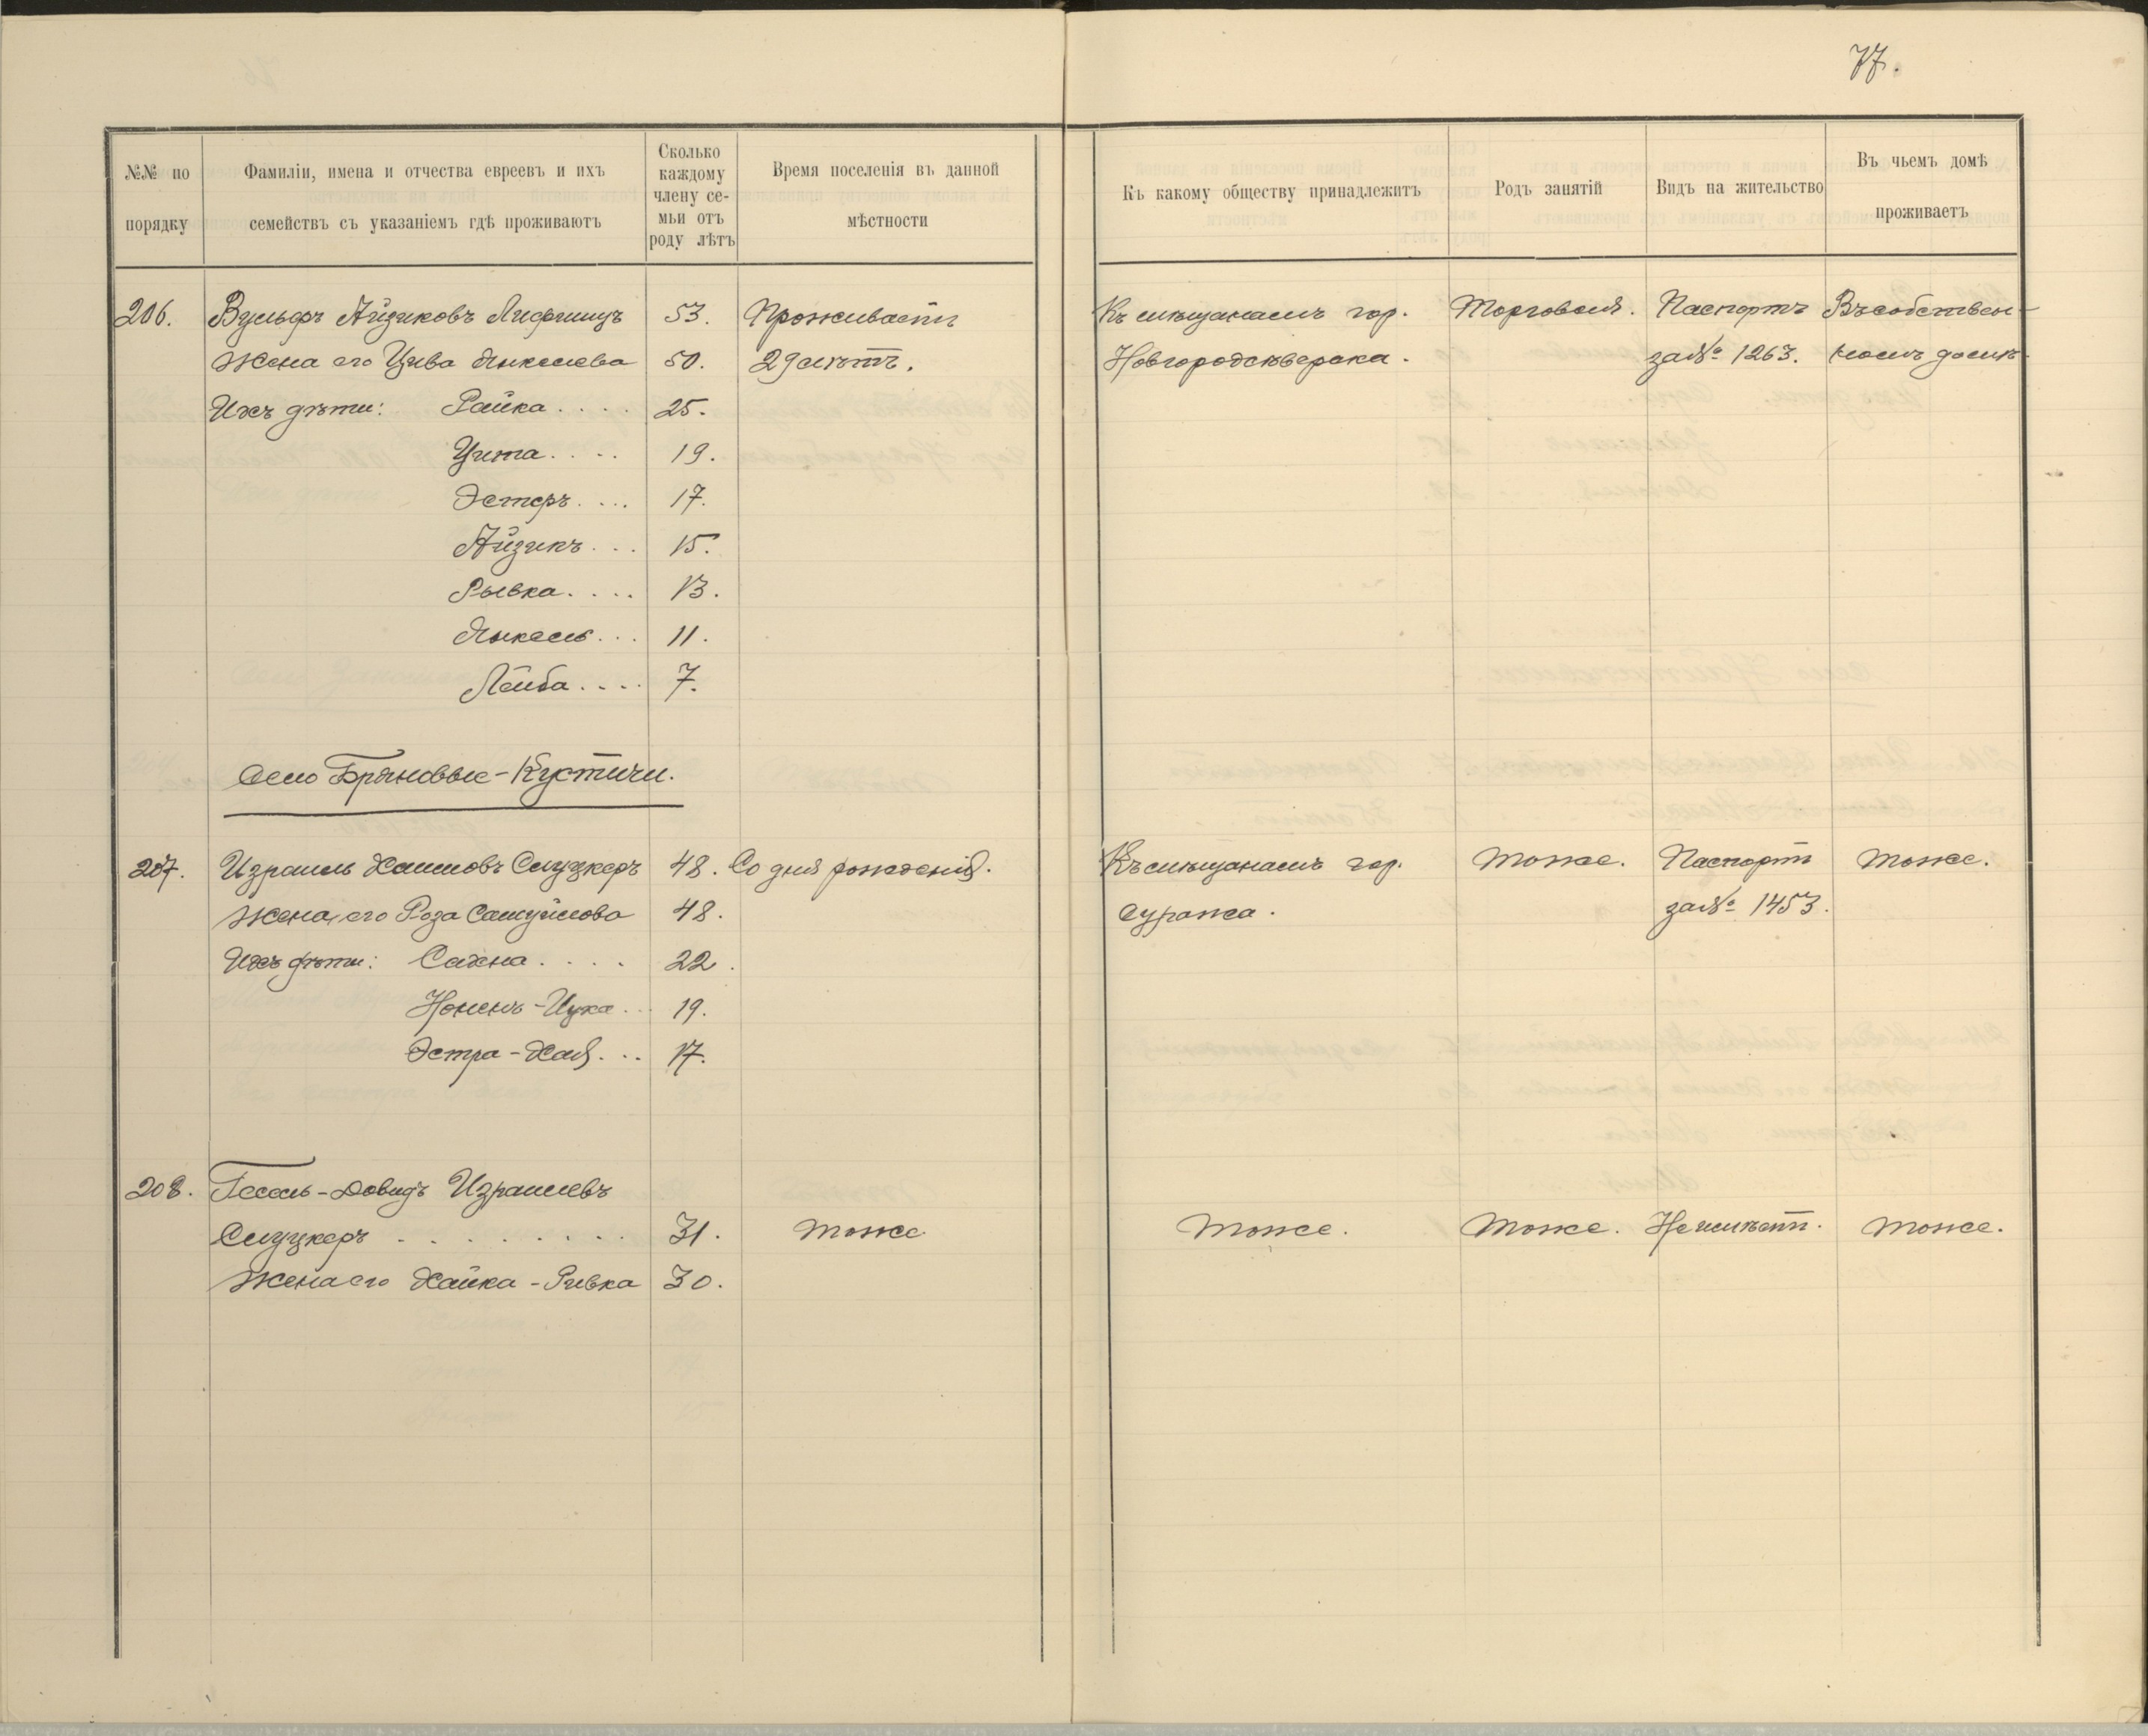 77.
№№ по
порядку
Фамиліи, имена и отчества евреевъ и ихъ
семействъ съ указаніемъ гдѣ проживаютъ
Сколько
каждому
члену се-
мьи отъ
роду лѣтъ
Время поселенія въ данной
мѣстности
Къ какому обществу принадлежитъ
Родъ занятій
Видъ на жительство
Въ чьемъ домѣ
проживаетъ
206. Вульфъ Айзиковъ Лифшицъ 53. Проживаетъ Къ мѣщанамъ гор. Торговля. Паспортъ Въ собствен-
Жена его Цива Янкелева 50. 29 лѣтъ. Новгородсѣверска. за № 1263. номъ домѣ
Ихъ дѣти: Райка.... 25.
Цита.... 19.
Эстеръ.... 17.
Айзикъ... 15.
Рывка.... 13.
Янкель... 11.
Лейба.... 7.
Село Бряновые-Кустичи.
207. Израиль Хаимовъ Слуцкеръ 48. Со дня рожденія. Къ мѣщанамъ гор. Тоже. Паспортъ Тоже.
Жена его Роза Самуйлова 48. Суража. за № 1453.
Ихъ дѣти: Сахна.... 22.
Нонень-Ицка.. 19.
Эстра-Хая... 17.
208. Гесель-Довидъ Израилевъ
Слуцкеръ......... 31. Тоже. Тоже. Тоже. Не имѣетъ. Тоже.
Жена его Хайка-Ривка 30.